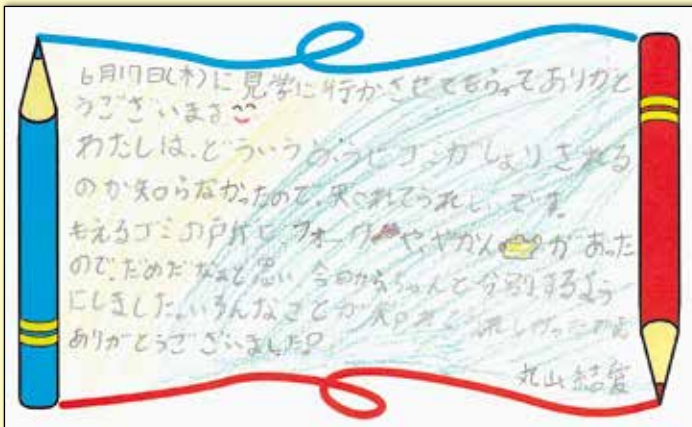 6月17日(木)に見学に行かせてもらってありがと
うございます
わたしは、どういうふうにゴミがしょりされる
のか知らなかったので、知れてうれしいです。
もえるゴミの所に、フォークや、やかんがあった
ので、だめだなぁと思い今日からちゃんと分別するよう
にしました。いろんなことが知れ
ありがとうございました
丸山結